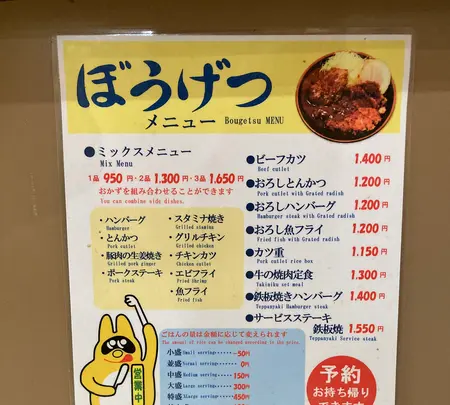 ぼうげつ
メニュー Bougetsu MENU
●ミックスメニュー
Mix Menu
1品 950円・2品 1.300円・3品 1.650円
おかずを組み合わせることができます
You can combine side dishes.
・ハンバーグ
Hamburger
・とんかつ
Pork cutlet
・豚肉の生姜焼き
Grilled pork ginger
・ポークステーキ
Pork steak
・スタミナ焼き
Grilled stamina
・グリルチキン
Grilled chicken
・チキンカツ
Chicken cutlet
・エビフライ
Fried Shrimp
・魚フライ
Fried fish
●ビーフカツ 1.400円
Beef cutlet
●おろしとんかつ 1.200円
Pork cutlet with Grated radish
●おろしハンバーグ 1.200円
Hamburger steak with Grated radish
●おろし魚フライ 1.200円
Fried fish with Grated radish
●カツ重 1.150円
Pork cutlet rice box
●牛の焼肉定食 1.300円
Yakiniku set meal
●鉄板焼きハンバーグ 1.400円
Teppanyaki Hamburger steak
●サービスステーキ
鉄板焼 1.550円
Teppanyaki Service steak
ごはんの量は金額に応じて変えられます
The amount of rice can be changed according to the price.
小盛 Small serving・・・・・-50円
並盛 Normal serving・・・・・0円
中盛 Medium serving・・・・・150円
大盛 Large serving・・・・・300円
特盛 XLarge serving・・・・・450円
営業中
予約
お持ち帰り
できます